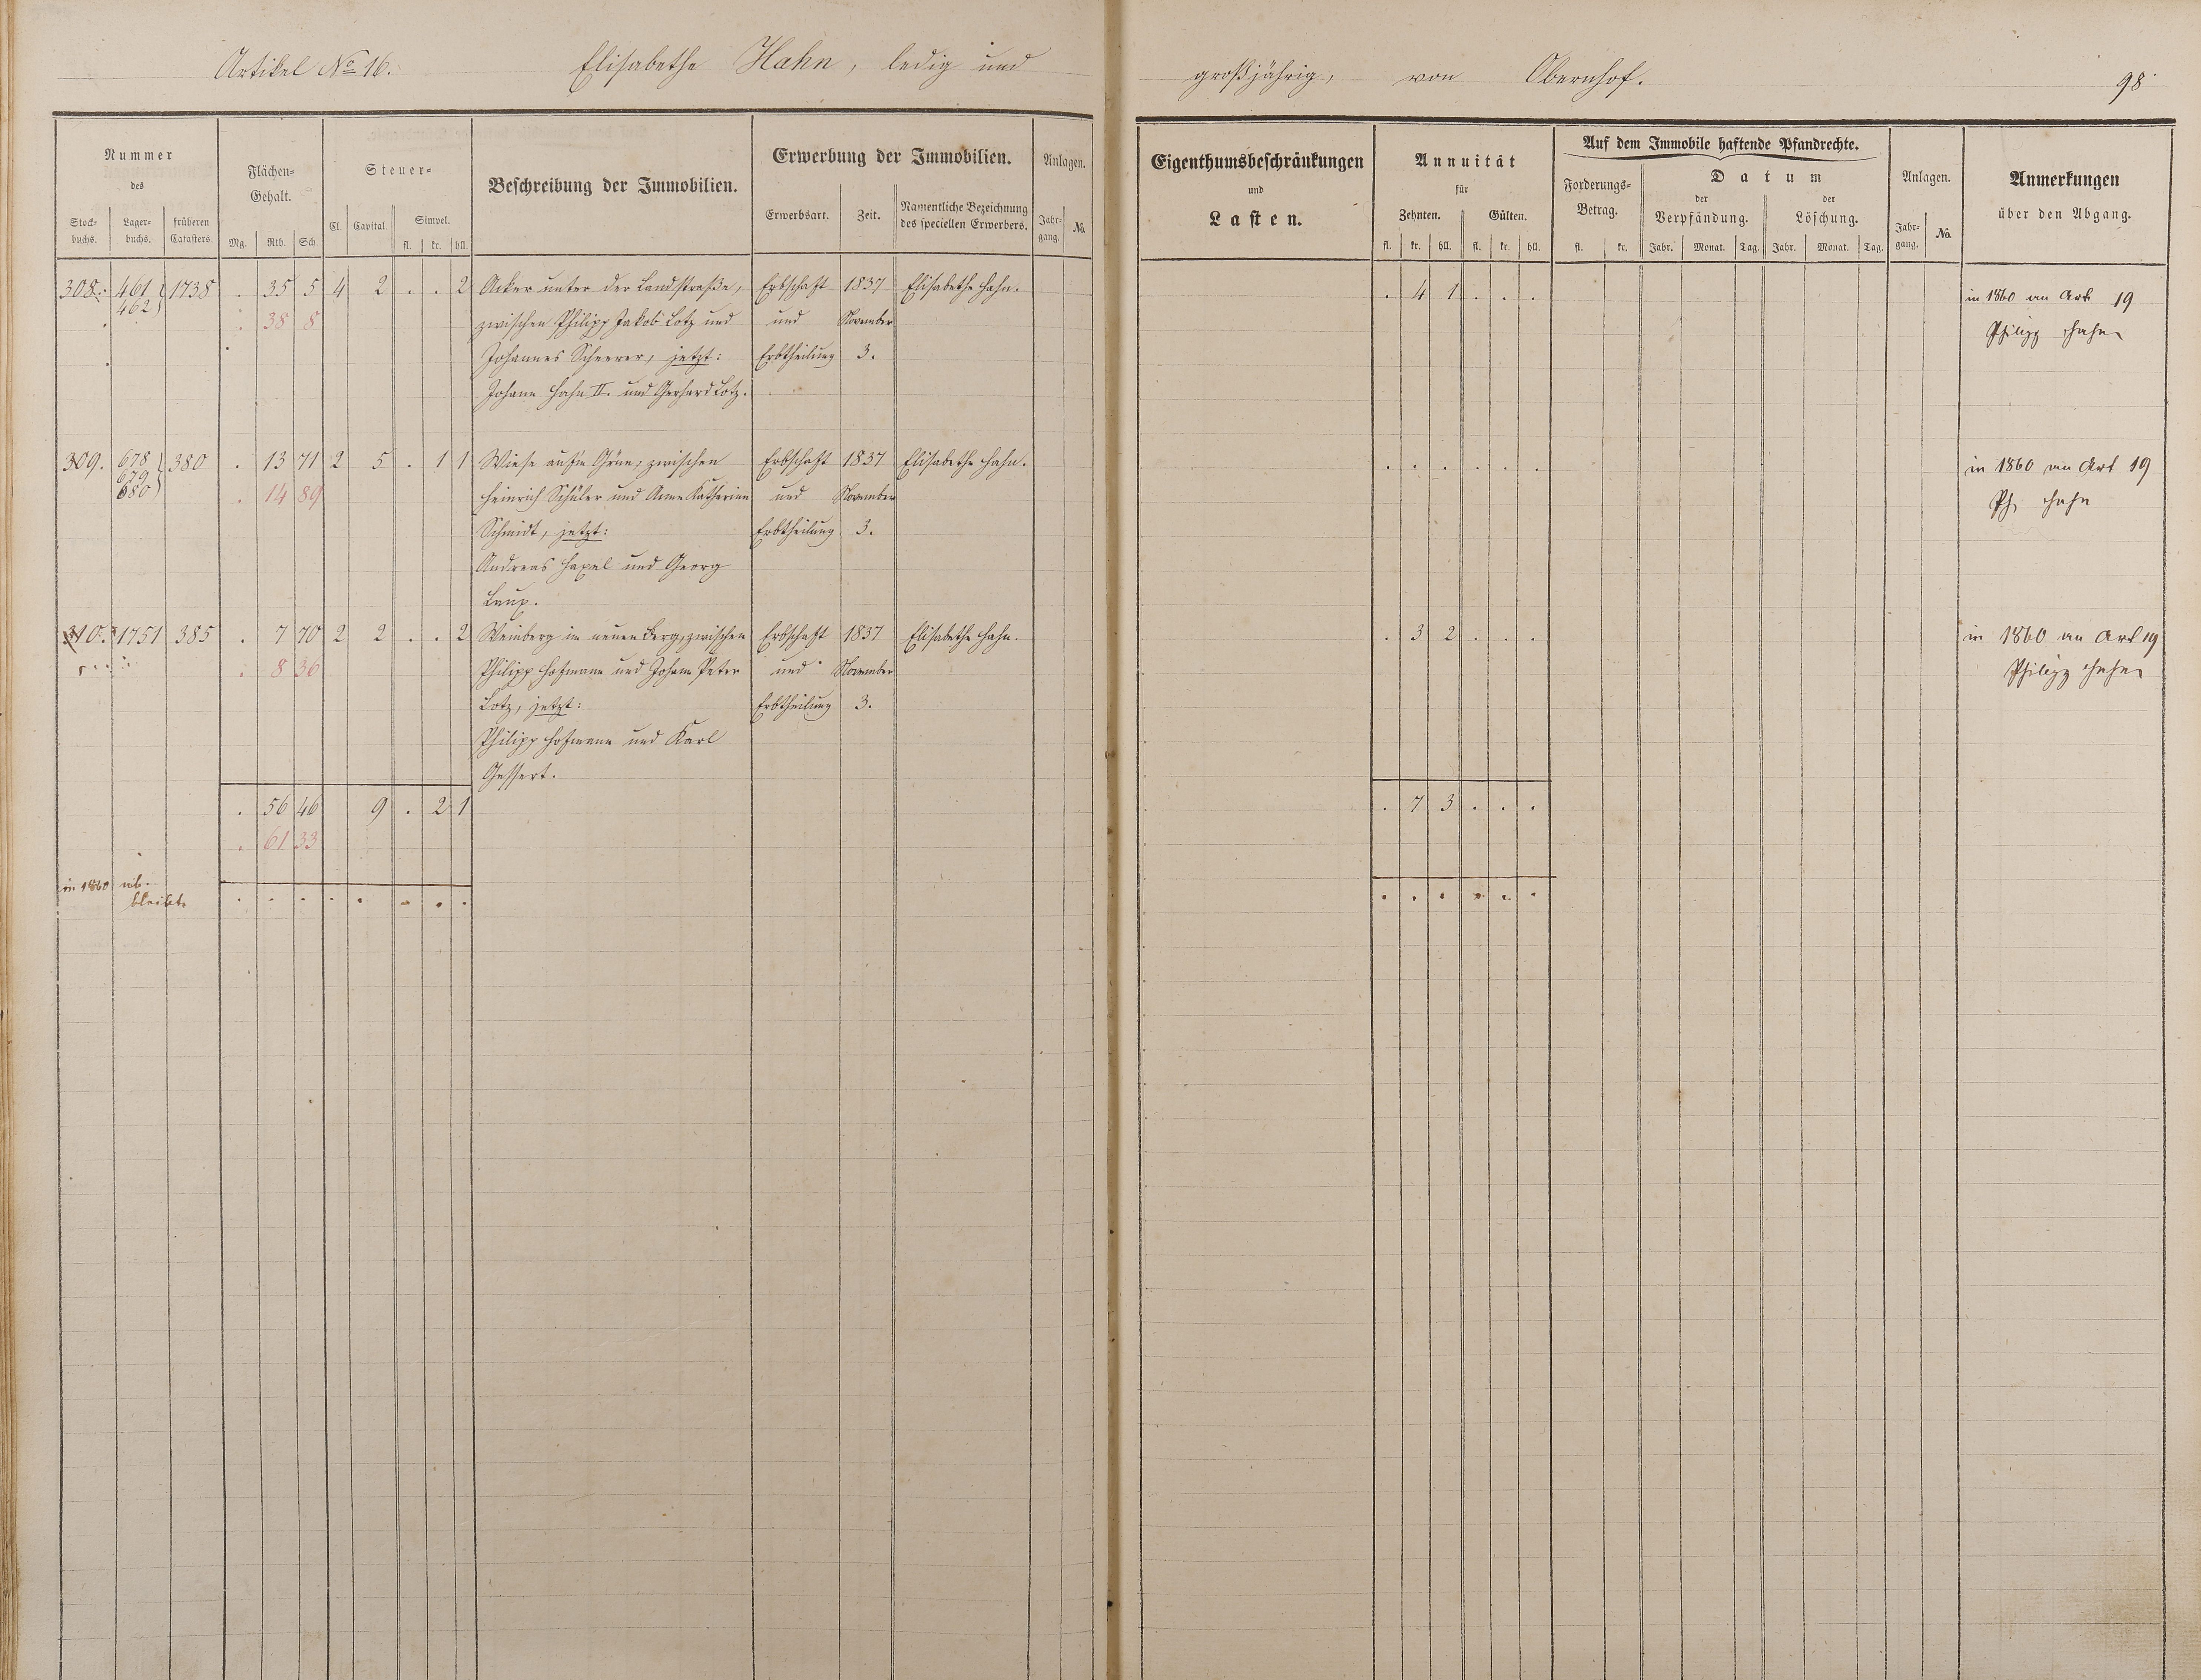 Artikel No 16. Elisabethe Hahn, ledig und großjährig, von Obernhof. 98
Nummer
des
Stock-
buchs.
Lager-
buchs.
früheren
Catasters.
Flächen-
Gehalt.
Mg. Rth. Sch.
Steuer-
Cl. Capital. Simpel.
fl. kr. hll.
Beschreibung der Immobilien.
Erwerbung der Immobilien.
Erwerbsart. Zeit.
Namentliche Bezeichnung
des speciellen Erwerbers.
Anlagen.
Jahr-
gang.
No.
Eigenthumsbeschränkungen
und
Lasten.
Annuität
für
Zehnten. Gülten.
fl. kr. hll. fl. kr. hll.
Auf dem Immobile haftende Pfandrechte.
Forderungs-
Betrag.
fl. kr.
Datum
der
Verpfändung.
der
Löschung.
Jahr. Monat. Tag. Jahr. Monat. Tag.
Anlagen.
Jahr-
gang.
No.
Anmerkungen
über den Abgang.
308. 461 1738 . 35 5 4 2 . . 2 Acker unter der Landstraße, Erbschaft 1837 Elisabethe Hahn. . 4 1 . . . in 1860 an Art 19
462 . 38 8 zwischen Philipp Jakob Lotz und und November Philipp Hahn
Johannes Scheerer, jetzt: Erbtheilung 3.
Johann Hahn II. und Gerhard Lotz.
309. 678 380 . 13 71 2 5 . 1 1 Wiese auf'm Grün, zwischen Erbschaft 1837 Elisabethe Hahn. . . . . . . in 1860 an Art 19
679
680 . 14 89 Heinrich Schüler und Anne Katharine und November Ph Hahn
Schmidt, jetzt: Erbtheilung 3.
Andreas Hapel und Georg
Laux.
310. 1751 385 . 7 70 2 2 . . 2 Weinberg im neuen Berg, zwischen Erbschaft 1837 Elisabethe Hahn. . 3 2 . . . in 1860 an Art 19
. 8 36 Philipp Hofmann und Johann Peter und November Philipp Hahn
Lotz, jetzt: Erbtheilung 3.
Philipp Hofmann und Karl
Gessert.
. 56 46 9 . 2 1 . 7 3 . . .
. 61 33
in 1860
bleibt . . . . . . . . . . . . . .